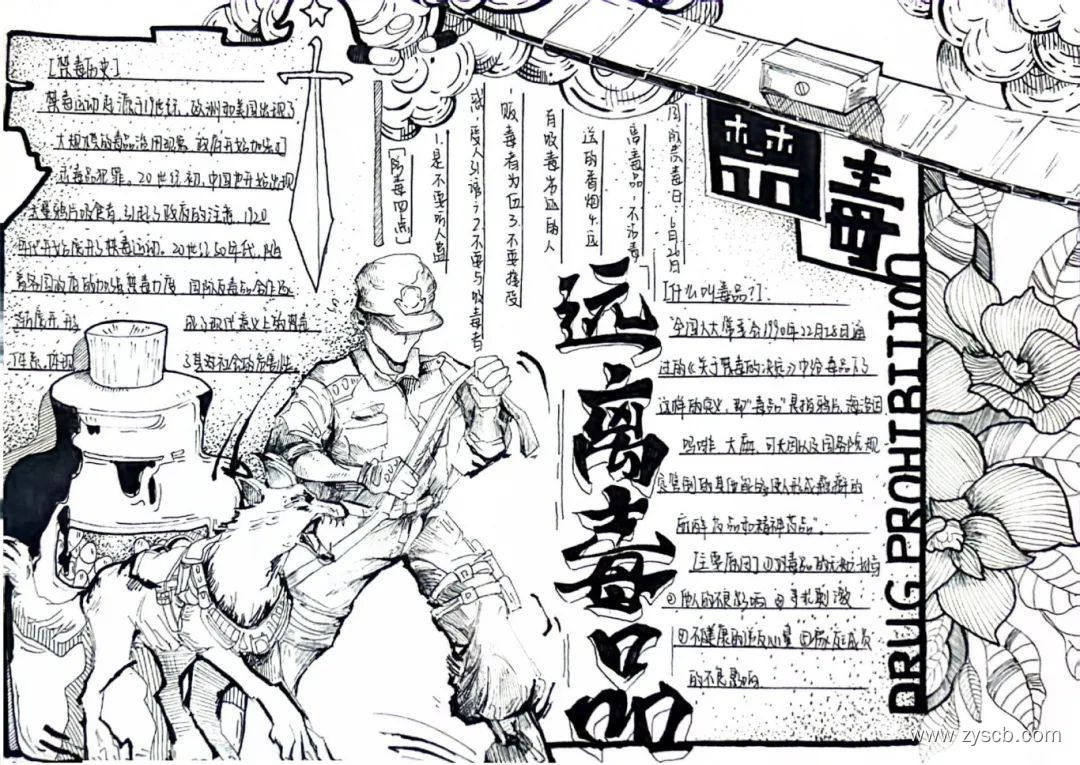 [禁毒历史]
禁毒运动起源于19世纪，欧洲和美国出现了
大规模的毒品滥用现象，政府开始加强打
击毒品犯罪。20世纪初，中国也开始出现
大量鸦片吸食者，引起了政府的注意，1920
年代开始展开了禁毒运动。20世纪50年代，随
着各国政府的加强禁毒力度，国际反毒品合作逐
渐展开，形 成了现代意义上的禁毒
了其对社会的危害性
[防毒四点]
1.是不要听人
说，受人引诱了2.不要与吸毒者
贩毒者为伍3.不要接受
有吸毒劣迹的人
送的香烟4.远
离毒品，不沾毒
国际禁毒日：6月26日
禁毒
远离毒品
[什么叫毒品？]
全国人大常委会1990年12月28日通
过的《关于禁毒的决定》中给毒品下了
这样的定义，即“毒品”是指鸦片、海洛因
吗啡、大麻、可卡因以及国务院规
定管制的其他能够使人形成瘾癖的
麻醉药品和精神药品”。
[主要原因]①对毒品的无知
②他人的不良影响 ③寻求刺激
④不健康的 ⑤家庭成员
的不良影响
DRUG PROHIBITION
www.zyscb.com